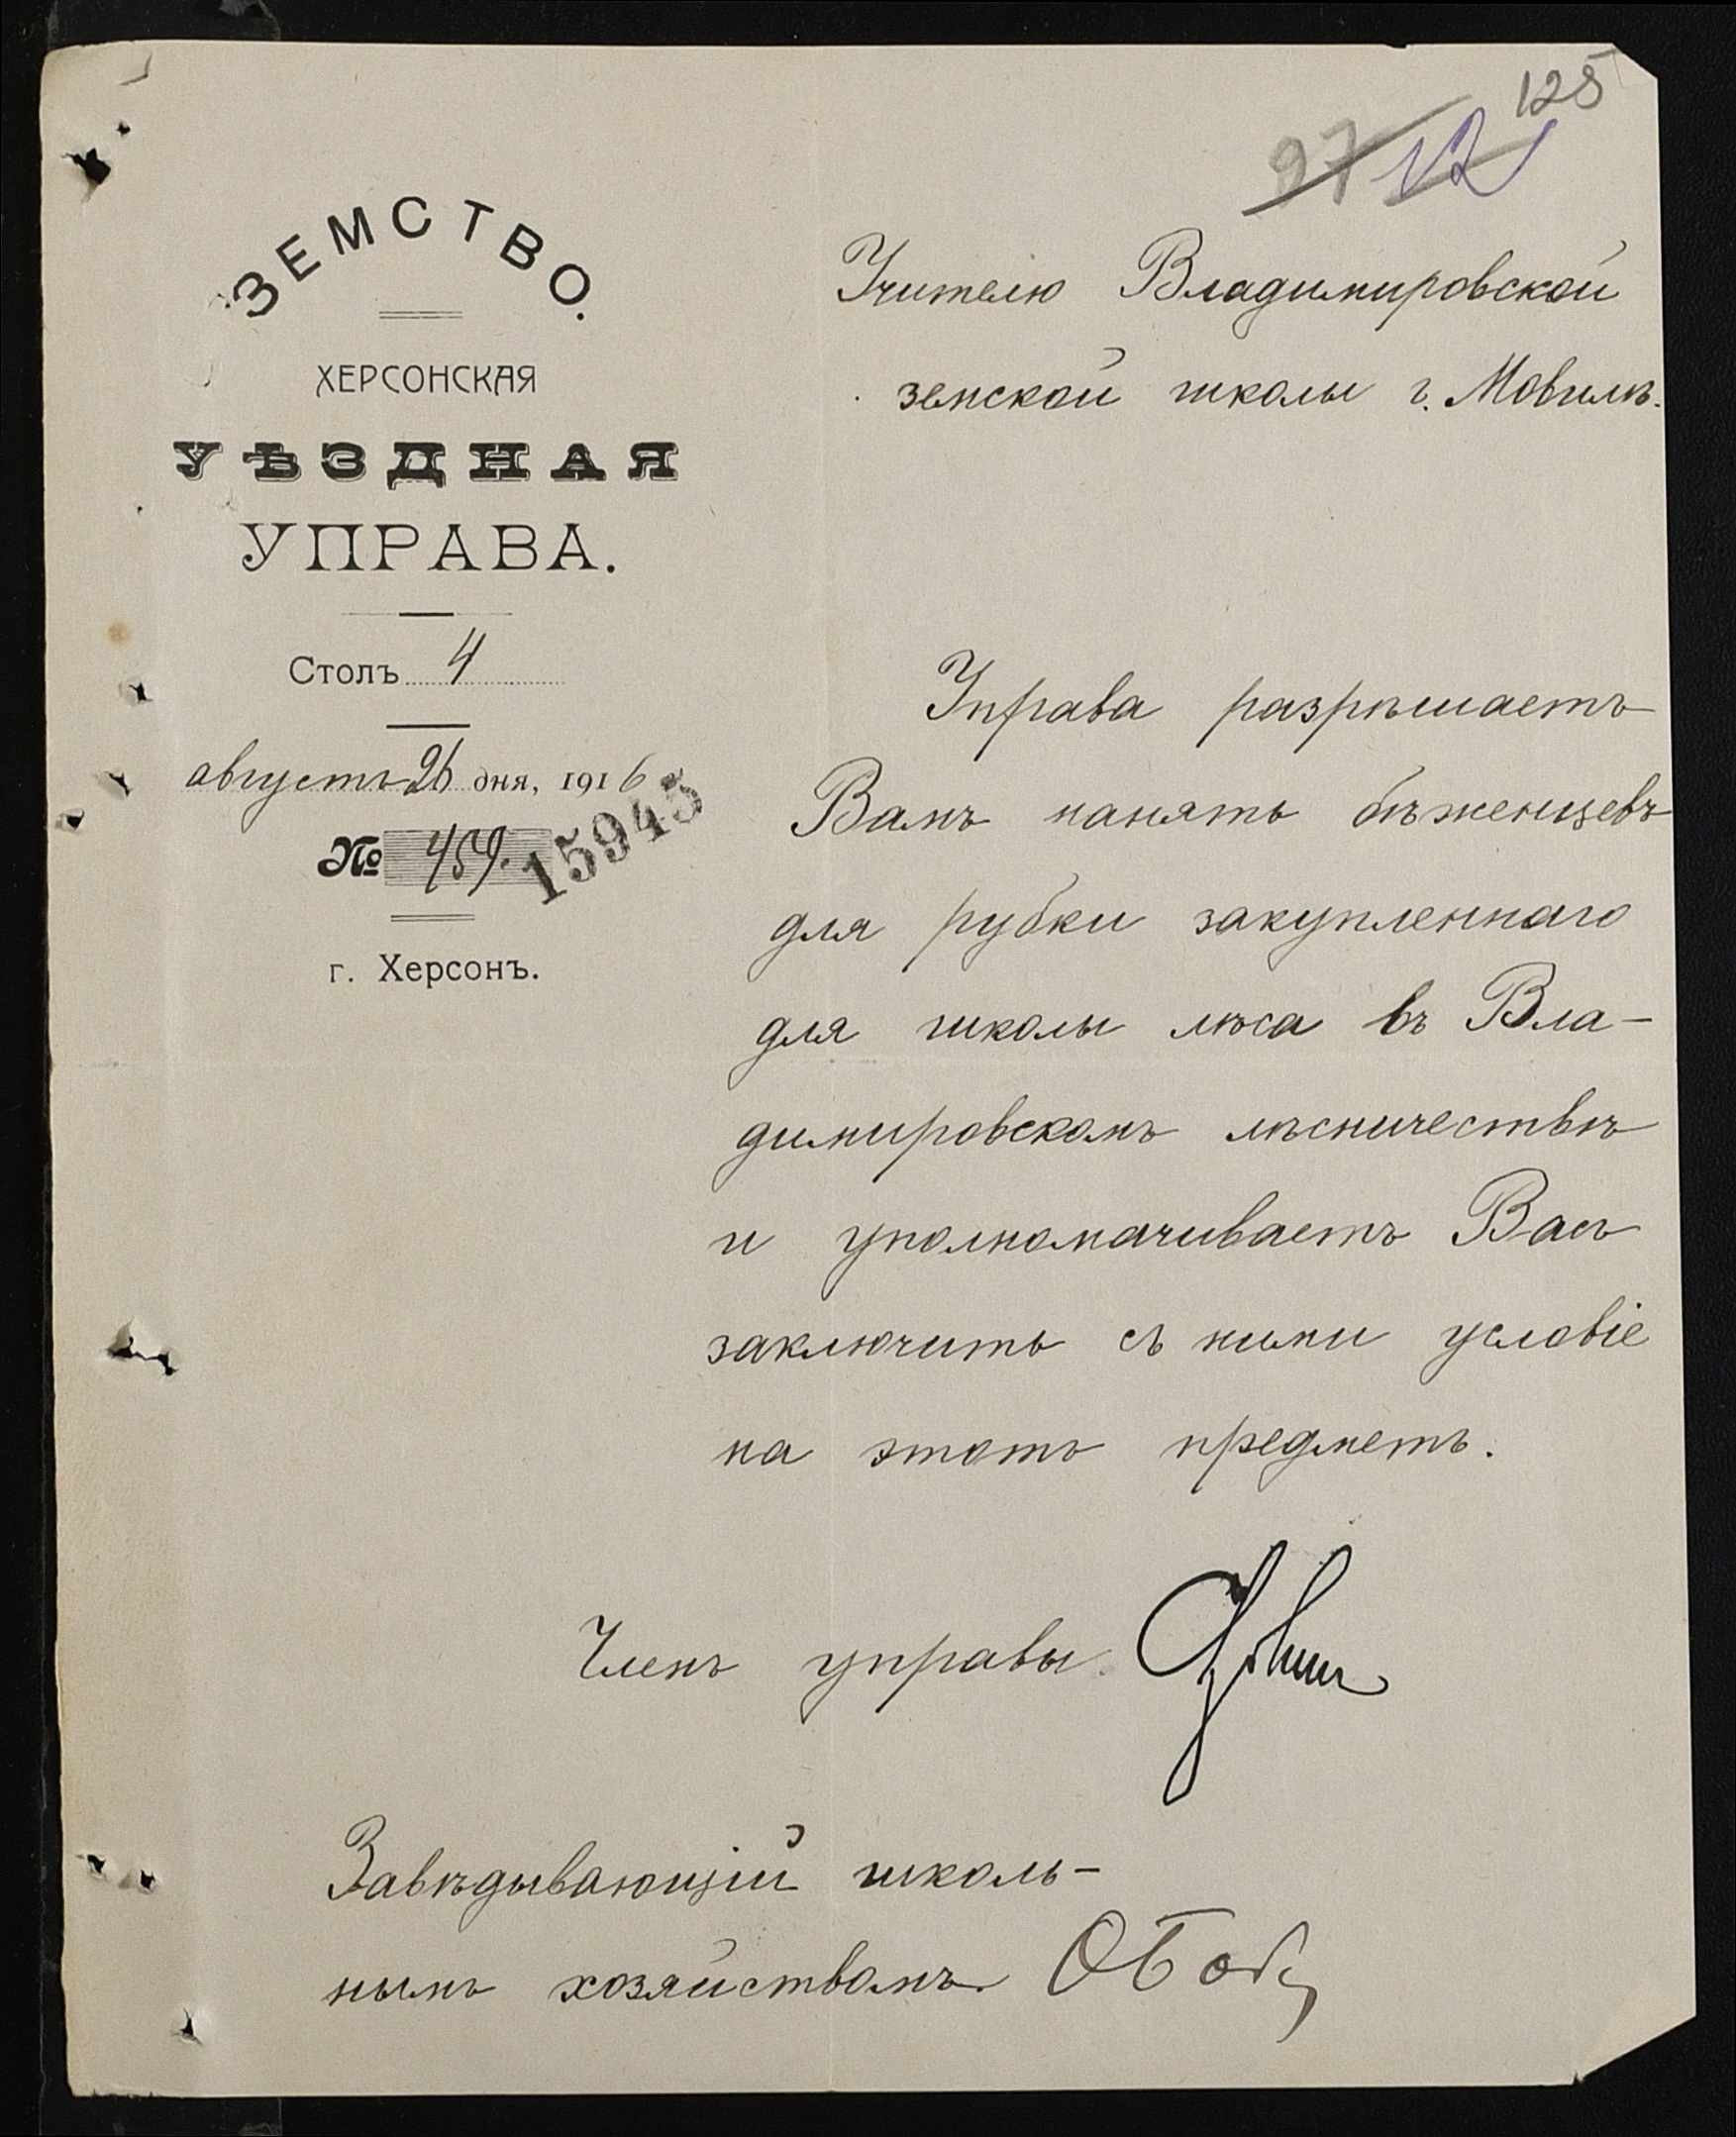 125
97 12
ЗЕМСТВО.
ХЕРСОНСКАЯ
УѢЗДНАЯ
УПРАВА.
Столъ 4
августъ 26 дня, 1916
№ 459. 15943
г. Херсонъ.
Учителю Владимировской
земской школы г. Мовилѣ.
Управа разрѣшаетъ
Вамъ нанять бѣженцевъ
для рубки закупленнаго
для школы лѣса въ Вла-
димировскомъ лѣсничествѣ
и уполномачиваетъ Васъ
заключить съ ними условіе
на этотъ предметъ.
Членъ управы
Завѣдывающій школь-
нымъ хозяйствомъ